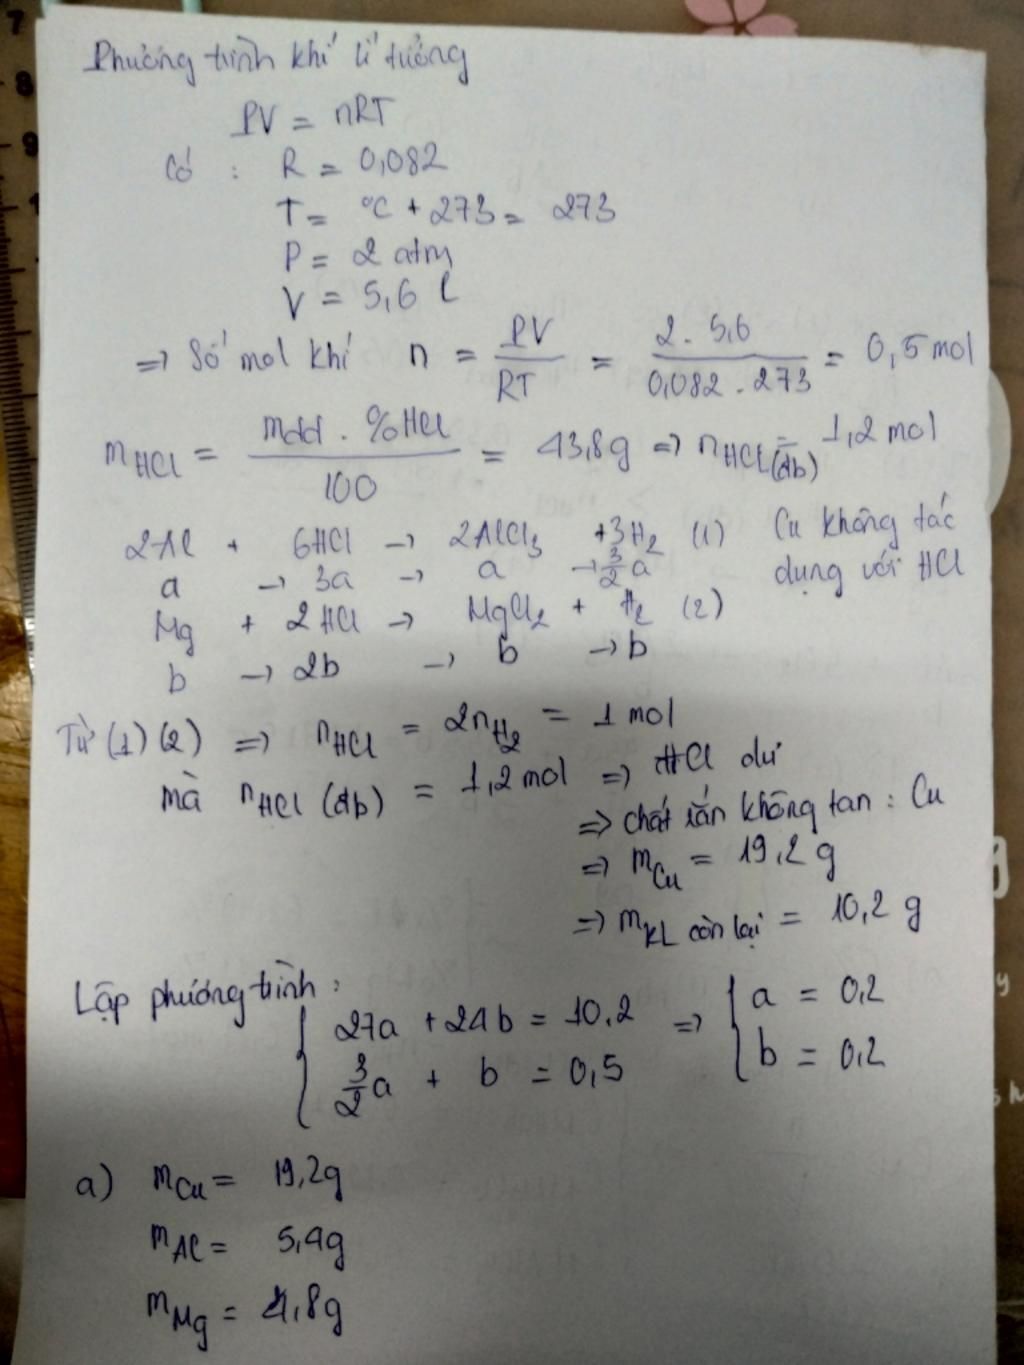 Phương trình khí lí tưởng
PV = nRT
Có : R = 0,082
T = °C + 273 = 273
P = 2 atm
V = 5,6 l
=> Số mol khí n = PV/RT = 2. 5,6/0,082 . 273 = 0,5 mol
mHCl = mdd . %HCl/100 = 43,8g => nHCl(db) = 1,2 mol
2Al + 6HCl → 2AlCl3 + 3H2 (1) Cu không tác
a → 3a → a → 3/2 a dụng với HCl
Mg + 2HCl → MgCl2 + H2 (2)
b → 2b → b → b
Từ (1) (2) => nHCl = 2nH2 = 1 mol
mà nHCl (db) = 1,2 mol => HCl dư
=> chất rắn không tan : Cu
=> mCu = 19,2 g
=> mKL còn lại = 10,2 g
Lập phương trình :
27a + 24b = 10,2 => a = 0,2
3/2 a + b = 0,5 b = 0,2
a) mCu = 19,2g
mAl = 5,4g
mMg = 4,8g